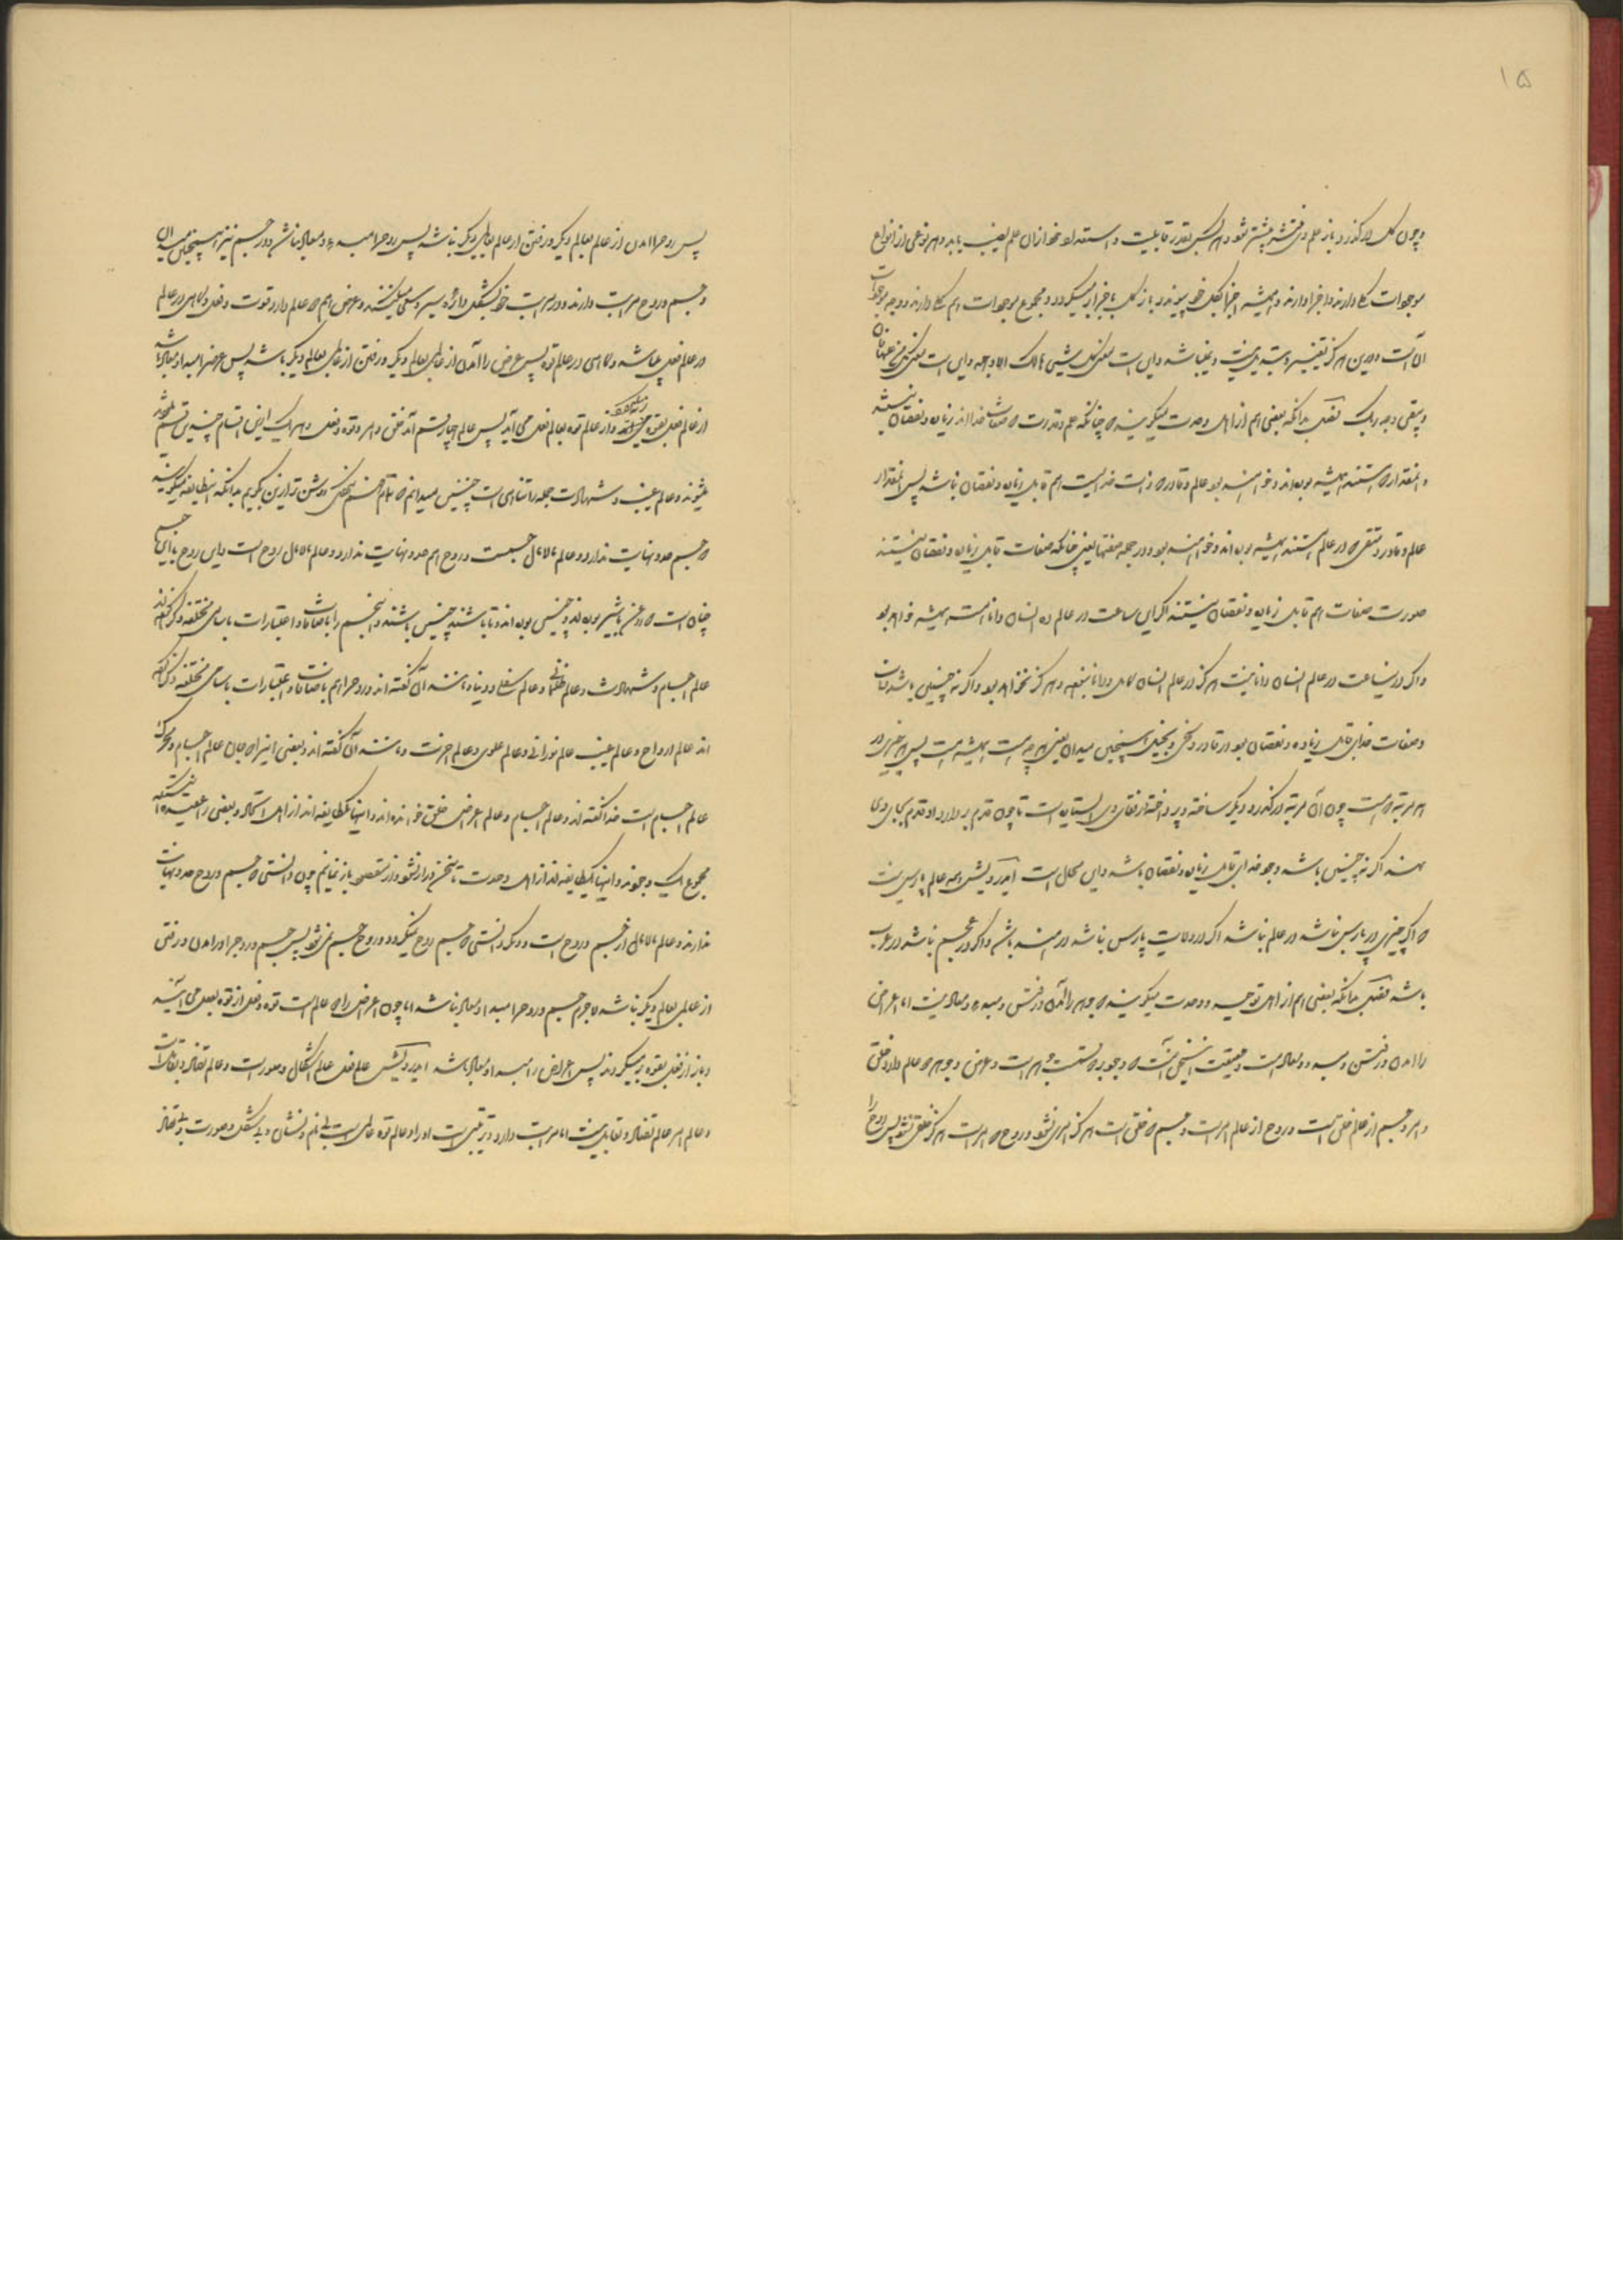 ۱۵
و چون کل در گذرد باز علم وی منتشر شود و هر کس بقدر قابلیت و استعداد خود از آن علم نصیب یابد و هر نوعی از انواع
موجودات کل دارند و اجزا دارند و همیشه اجزا بکل خود پیوندد و باز کل باجزا باز میگردد و مجموع موجودات هم کل دارند و وجه
آنست و درین هرگز تغییر و تبدیل نیست و نباشد و این است معنی کل شیئی هالک الا وجهه و این است معنی کل من علیها فان
و یبقی وجه ربک فصل بدانکه بعضی هم از اهل وحدت میگویند که چنانکه علم و قدرت که صفات خدااند زیان و نقصان
و آنمقدار که هستند همیشه بوده‌اند و خواهند بود عالم و قادر که ذات خدایست هم قابل زیان و نقصان نباشد پس آنمقدار
عالم و قادر و متقی که در عالم هستند همیشه بوده اند و خواهند بود و در جمله صفتها یعنی چنانکه صفات قابل زیان و نقصان نیستند
صورت صفات هم قابل زیان و نقصان نیستند اگر این ساعت در عالم ده انسان دانا هست همیشه خواهد بود
و اگر درین ساعت در عالم انسان دانا نیست هرگز در عالم انسان کامل و دانا نبود و هرگز نخواهد بود و اگر نه چنین باشد ذات
و صفات خدای قابل زیاده و نقصان بود در قادر و سخی و بخیل همچنین میدان یعنی هر چه هست همیشه هست پس هر چیزی در
هر مرتبه که هست چون آن مرتبه در گذرد دیگر ساخته و پرداخته از قفای وی ایستاده است تا چون قدم بردارد او قدم بجای وی
نهد اگر نه چنین باشد وجود خدای قابل زیان و نقصان باشد و این محال است ایدرویش همه عالم پارس نیست
که اگر چیزی در پارس نباشد در عالم نباشد اگر در ولایت پارس نباشد در هند باشد و اگر در عجم نباشد در عرب
باشد فصل بدانکه بعضی هم از اهل توحید و وحدت میگویند که جوهر را آمدن و رفتن و مبدء و معاد نیست اما عرض
را آمدن و رفتن و مبدء و معاد هست و حقیقت این سخن آنست که وجود بر دو قسمت جوهر است و عرض و جوهر دو عالم دارد خلق
و امر و جسم از عالم خلق است و روح از عالم امر است و جسم که خلق است هرگز امری نشود و روح که امر است هرگز خلق نشود پس روح را
پس روح را آمدن از عالم بعالم دیگر و رفتن از عالم بعالم دیگر نباشد پس روح را مبدء و معاد نباشد و در جسم نیز همچنین میدان
و جسم و روح مراتب دارند و در مراتب خود بشکل دائره سیر و سلوک میکنند و عرض هم دو عالم دارد قوت و فعل و گاهی در عالم
در عالم فعل میباشد و گاهی در عالم قوه پس عرض را آمدن از عالم بعالم دیگر و رفتن از عالم بعالم دیگر باشد پس عرض را مبدء و معاد باشد
از عالم فعل بقوه میرود و از عالم قوه بعالم فعل می آید پس عالم چهار قسم آمد خلق و امر و قوه و فعل و هر یک از این اقسام چندین قسم
میشوند و عالم غیب و شهادت جمله را تناهی است چنین میدانم که تمام فهم نکردی روشن تر ازین بگویم بدانکه این طایفه میگویند
که جسم حد و نهایت ندارد و عالم مالامال جسمست و روح هم حد و نهایت ندارد و عالم مالامال روح است و این روح با این جسم
چنان است که روغن با شیر بوده‌اند و چنین بوده اند و تا باشند چنین باشند و این جسم را باضافات و اعتبارات باسامی مختلفه ذکر کرده‌اند
عالم اجسام و شهادت و عالم ظلمانی و عالم سفلی و دنیا و مانند آن گفته اند و روح را هم باضافات و اعتبارات باسامی مختلفه ذکر کرده
اند عالم ارواح و عالم غیب عالم نورانی و عالم علوی و عالم آخرت و مانند آن گفته اند و بعضی این را که جان عالم اجسام و محرک
عالم اجسام است خدا گفته اند و عالم اجسام و عالم اعراض خلق خوانده اند و اینها یکطایفه اند از اهل
مجموع یک وجود و اینها یکطایفه اند از اهل وحدت تا سخن دراز نشود و از مقصود باز نمانم چون دانستی که جسم و روح حد و نهایت
ندارند و عالم مالامال از جسم و روح است و دیگر دانستی که جسم روح نمیگردد و روح جسم نمی شود پس جسم و روح را در آمدن و رفتن
از عالمی بعالم دیگر نباشد لاجرم جسم و روح را مبداء و معاد نباشد اما چون اعراض را دو عالم است قوه و فعل از قوه بفعل می آیند
و باز از فعل بقوه بر میگردند پس اعراض را مبداء و معاد باشد ایدرویش عالم فعل عالم اشکال و صورت است و عالم تضاد و تقابل است
و عالم امر عالم تضاد و تقابل نیست اما مراتب دارد و ترتیبی است او را و عالم قوه عالمی است بی نام و نشان و بی شکل و صورت و بی تضاد